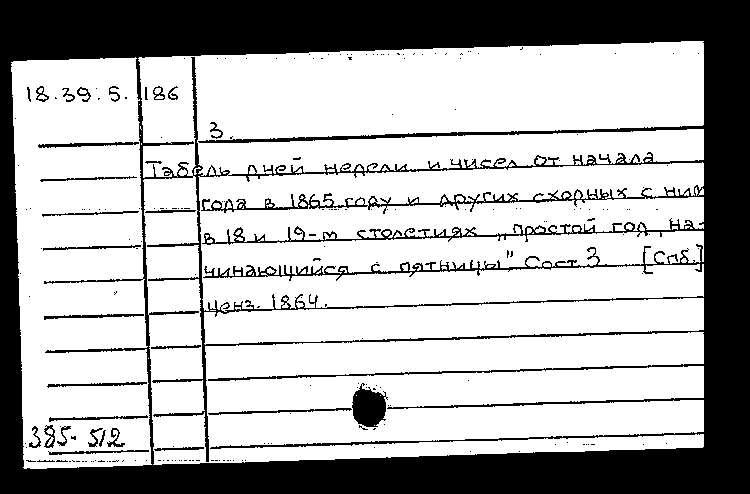 18.39.5.186
3.
Табель дней недели и чисел от начала
года в 1865 году и других сходных с ним
в 18 и 19-м столетиях „простой год, на-
чинающийся с пятницы". Сост. З. [Спб.]
ценз. 1864.
385-512